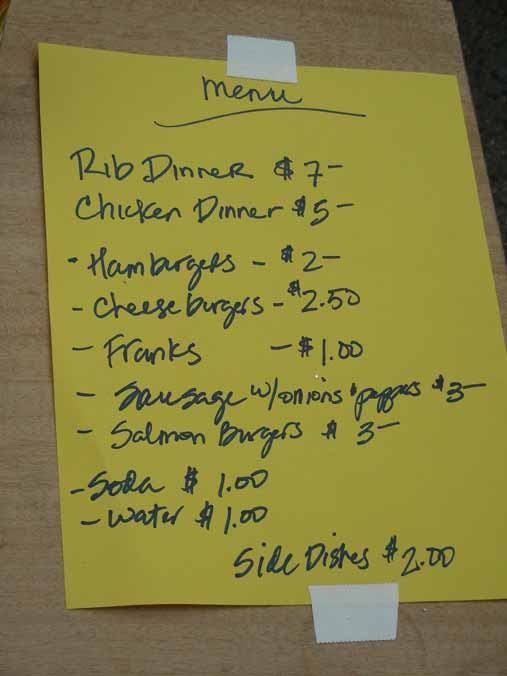 menu
Rib Dinner $7–
Chicken Dinner $5–
- Hamburgers - $2–
- Cheeseburgers - $2.50
- Franks - $1.00
- Sausage w/onions & peppers $3–
- Salmon Burgers $3–
- Soda $1.00
- Water $1.00
Side Dishes $2.00